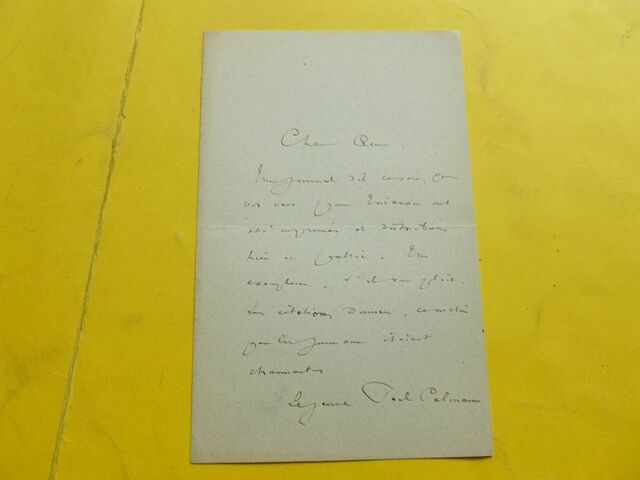 Cher Ami
Un journal dit ce soir, que
vos vers pour Trianon ont
été imprimés et distribués
hier en
exemplaire, s'il vous plaît.
Les citations données, ce matin
par les journaux étaient
charmantes